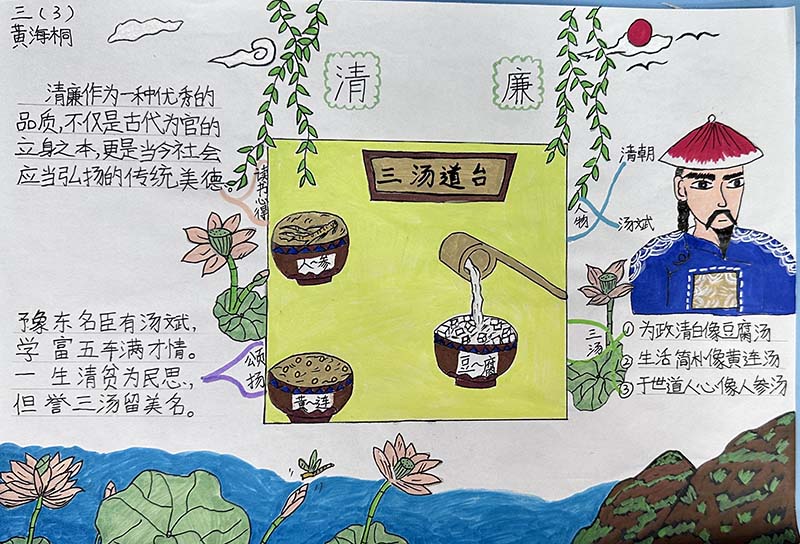 三（3）
黄海桐
清
廉
清廉作为一种优秀的
品质,不仅是古代为官的
立身之本,更是当今社会
应当弘扬的传统美德。
读书心得
三汤道台
人参
豆腐
黄连
人物
清朝
汤斌
豫东名臣有汤斌，
学富五车满才情。
一生清贫为民思，
但誉三汤留美名。
颂扬
三汤
① 为政清白像豆腐汤
② 生活简朴像黄连汤
③ 于世道人心像人参汤